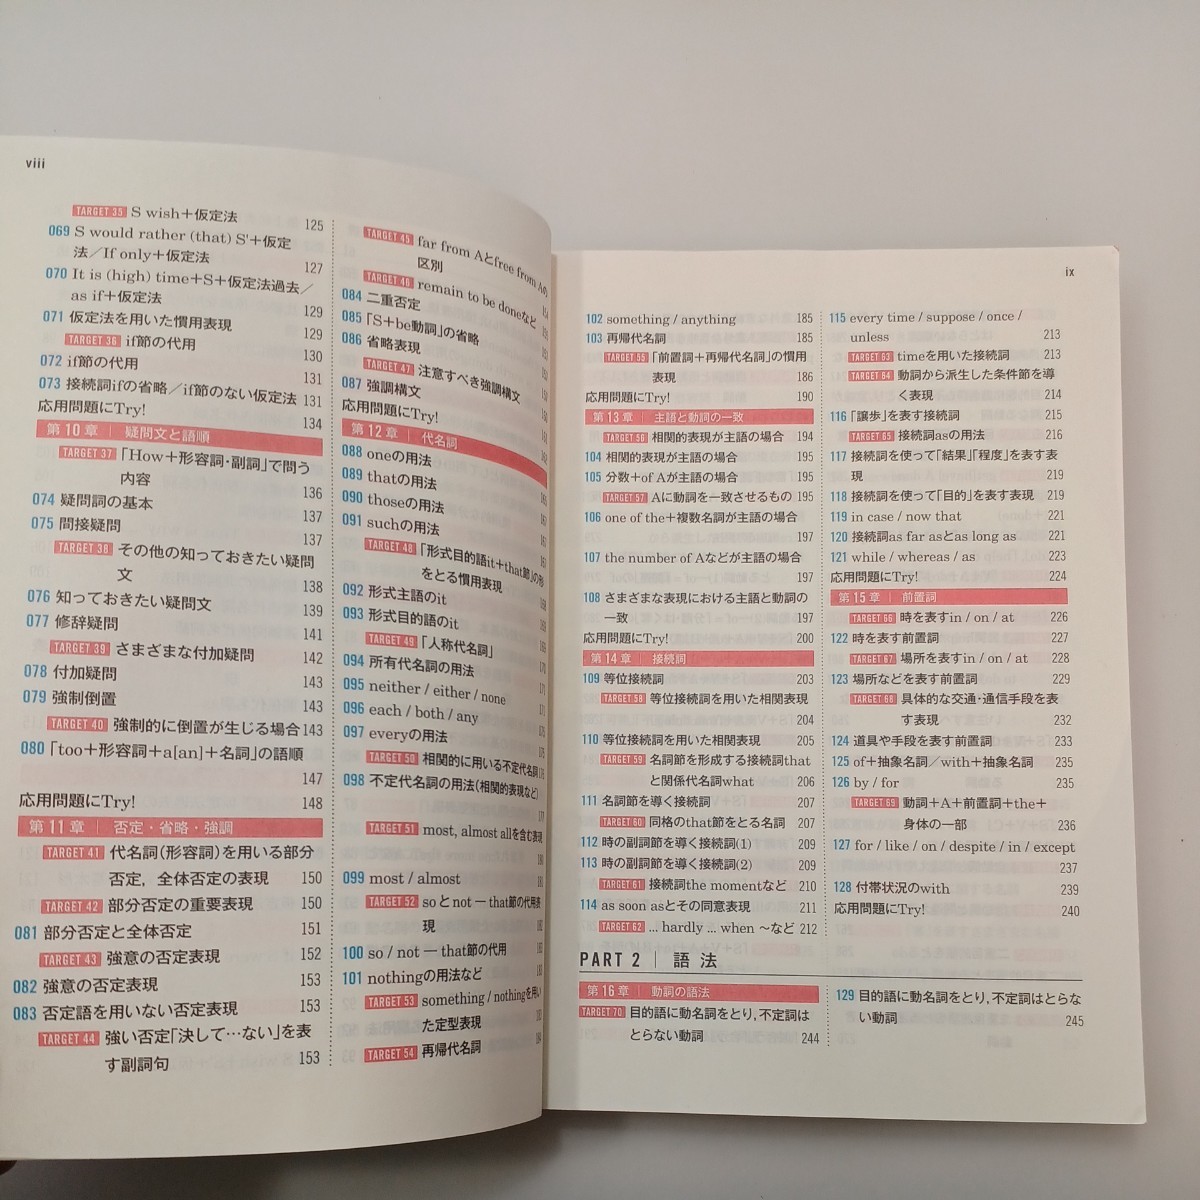 viii
TARGET 35 S wish＋仮定法 125
069 S would rather (that) S'＋仮定
法／If only＋仮定法 127
070 It is (high) time＋S＋仮定法過去／
as if＋仮定法 129
071 仮定法を用いた慣用表現 129
TARGET 36 if節の代用 130
072 if節の代用 131
073 接続詞ifの省略／if節のない仮定法 131
応用問題にTry! 134
第10章 疑問文と語順
TARGET 37 「How＋形容詞・副詞」で問う
内容 136
074 疑問詞の基本 137
075 間接疑問 137
TARGET 38 その他の知っておきたい疑問
文 138
076 知っておきたい疑問文 139
077 修辞疑問 141
TARGET 39 さまざまな付加疑問 142
078 付加疑問 143
079 強制倒置 143
TARGET 40 強制的に倒置が生じる場合 143
080 「too＋形容詞＋a[an]＋名詞」の語順
147
応用問題にTry! 148
第11章 否定・省略・強調
TARGET 41 代名詞(形容詞)を用いる部分
否定，全体否定の表現 150
TARGET 42 部分否定の重要表現 150
081 部分否定と全体否定 151
TARGET 43 強意の否定表現 152
082 強意の否定表現 153
083 否定語を用いない否定表現 153
TARGET 44 強い否定「決して…ない」を表
す副詞句 153
TARGET 45 far from Aとfree from Aの
区別
TARGET 46 remain to be doneなど
084 二重否定
085 「S＋be動詞」の省略
086 省略表現
TARGET 47 注意すべき強調構文
087 強調構文
応用問題にTry!
第12章 代名詞
088 oneの用法
089 thatの用法
090 thoseの用法
091 suchの用法
TARGET 48 「形式目的語it＋that節」の形
をとる慣用表現
092 形式主語のit
093 形式目的語のit
TARGET 49 「人称代名詞」
094 所有代名詞の用法
095 neither / either / none
096 each / both / any
097 everyの用法
TARGET 50 相関的に用いる不定代名詞
098 不定代名詞の用法(相関的表現など)
TARGET 51 most, almost allを含む表現
099 most / almost
TARGET 52 soとnot ― that節の代用表
現
100 so / not ― that節の代用
101 nothingの用法など
TARGET 53 something / nothingを用い
た定型表現
TARGET 54 再帰代名詞
ix
102 something / anything 185
103 再帰代名詞 185
TARGET 55 「前置詞＋再帰代名詞」の慣用
表現 186
応用問題にTry! 190
第13章 主語と動詞の一致
TARGET 56 相関的表現が主語の場合 194
104 相関的表現が主語の場合 195
105 分数＋of Aが主語の場合 195
TARGET 57 Aに動詞を一致させるもの 195
106 one of the＋複数名詞が主語の場合
197
107 the number of Aなどが主語の場合
197
108 さまざまな表現における主語と動詞の
一致 197
応用問題にTry! 200
第14章 接続詞
109 等位接続詞 203
TARGET 58 等位接続詞を用いた相関表現
204
110 等位接続詞を用いた相関表現 205
TARGET 59 名詞節を形成する接続詞that
と関係代名詞what 206
111 名詞節を導く接続詞 207
TARGET 60 同格のthat節をとる名詞 207
112 時の副詞節を導く接続詞(1) 209
113 時の副詞節を導く接続詞(2) 209
TARGET 61 接続詞the momentなど 210
114 as soon asとその同意表現 211
TARGET 62 ... hardly ... when ～など 212
115 every time / suppose / once /
unless 213
TARGET 63 timeを用いた接続詞 213
TARGET 64 動詞から派生した条件節を導
く表現 214
116 「譲歩」を表す接続詞 215
TARGET 65 接続詞asの用法 216
117 接続詞を使って「結果」「程度」を表す表
現 219
118 接続詞を使って「目的」を表す表現 219
119 in case / now that 221
120 接続詞as far asとas long as 221
121 while / whereas / as 223
応用問題にTry! 224
第15章 前置詞
TARGET 66 時を表すin / on / at 226
122 時を表す前置詞 227
TARGET 67 場所を表すin / on / at 228
123 場所などを表す前置詞 229
TARGET 68 具体的な交通・通信手段を表
す表現 232
124 道具や手段を表す前置詞 233
125 of＋抽象名詞／with＋抽象名詞 235
126 by / for 235
TARGET 69 動詞＋A＋前置詞＋the＋
身体の一部 236
127 for / like / on / despite / in / except
237
128 付帯状況のwith 239
応用問題にTry! 240
PART 2 語法
第16章 動詞の語法
TARGET 70 目的語に動名詞をとり，不定詞は
とらない動詞 244
129 目的語に動名詞をとり，不定詞はとらな
い動詞 245